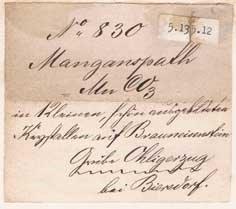 No 830
5.135.12
Manganspath
Mn CO3
in kleinen schön ausgebildeten
Krystallen auf Brauneisenstein
Grube Ohligerzug
bei Biersdorf.